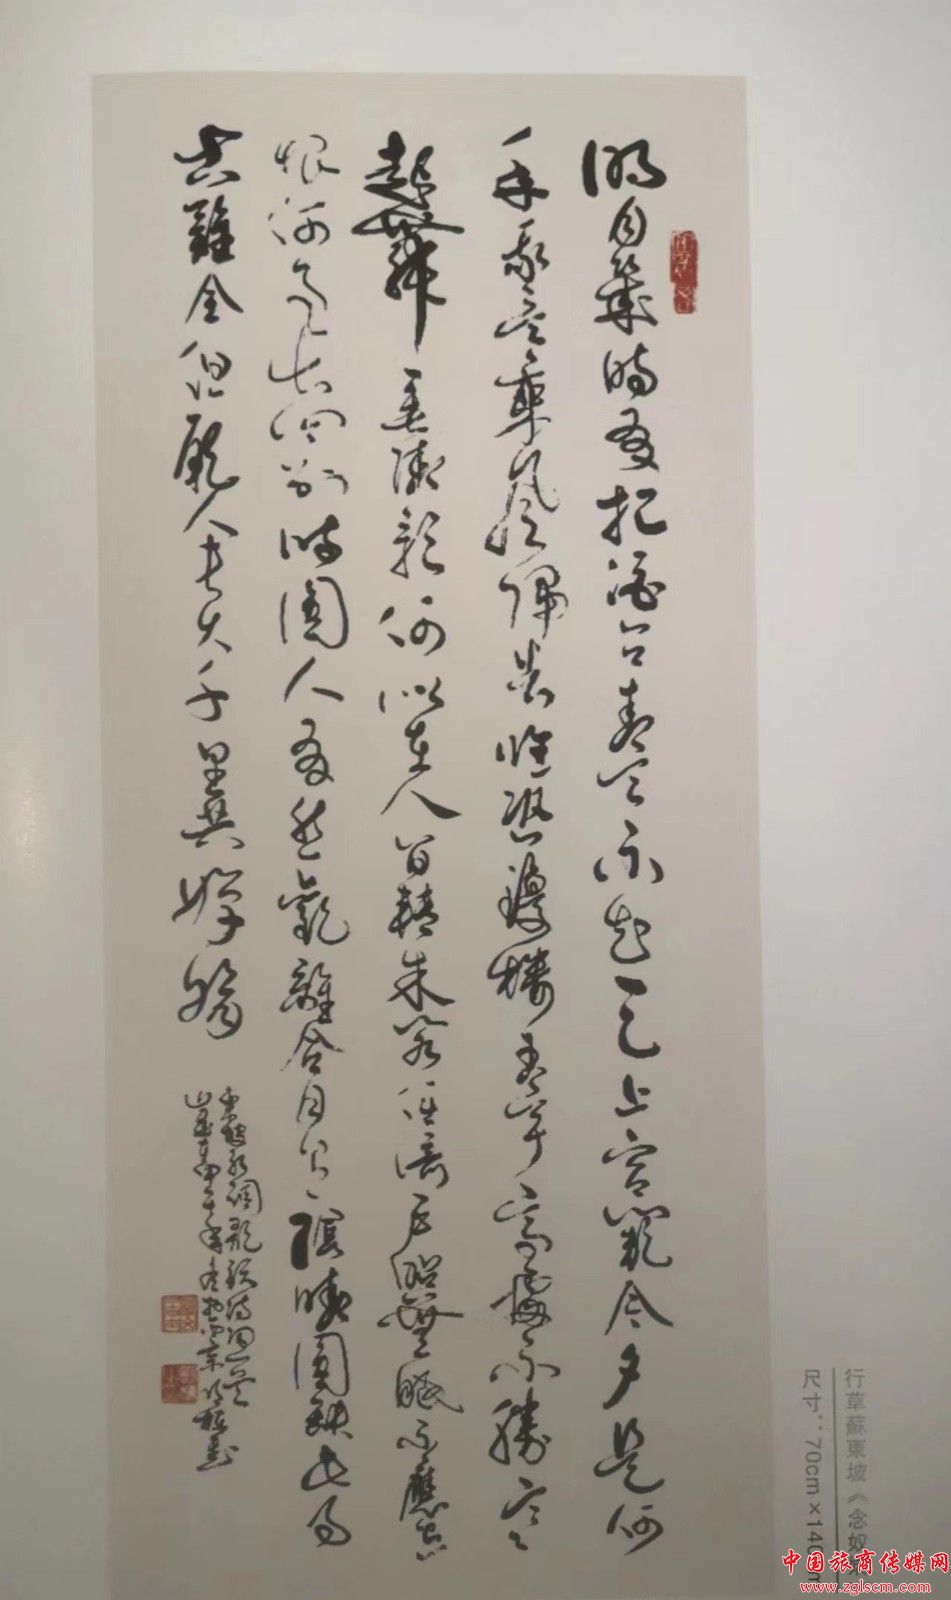 明月幾時有把酒问青天不知天上宫闕今夕是何
年我欲乘風歸去惟恐瓊樓玉宇高處不勝寒
起舞弄清影何似在人间轉朱閣低綺户照無眠不應有
恨何事长向别時圓人有悲歡離合月有陰晴圓缺此事
古難全但願人长久千里共嬋娟
東坡水調歌頭
行草蘇東坡《念奴
尺寸：70cm×140
中国旅商传媒网
www.zglscm.com